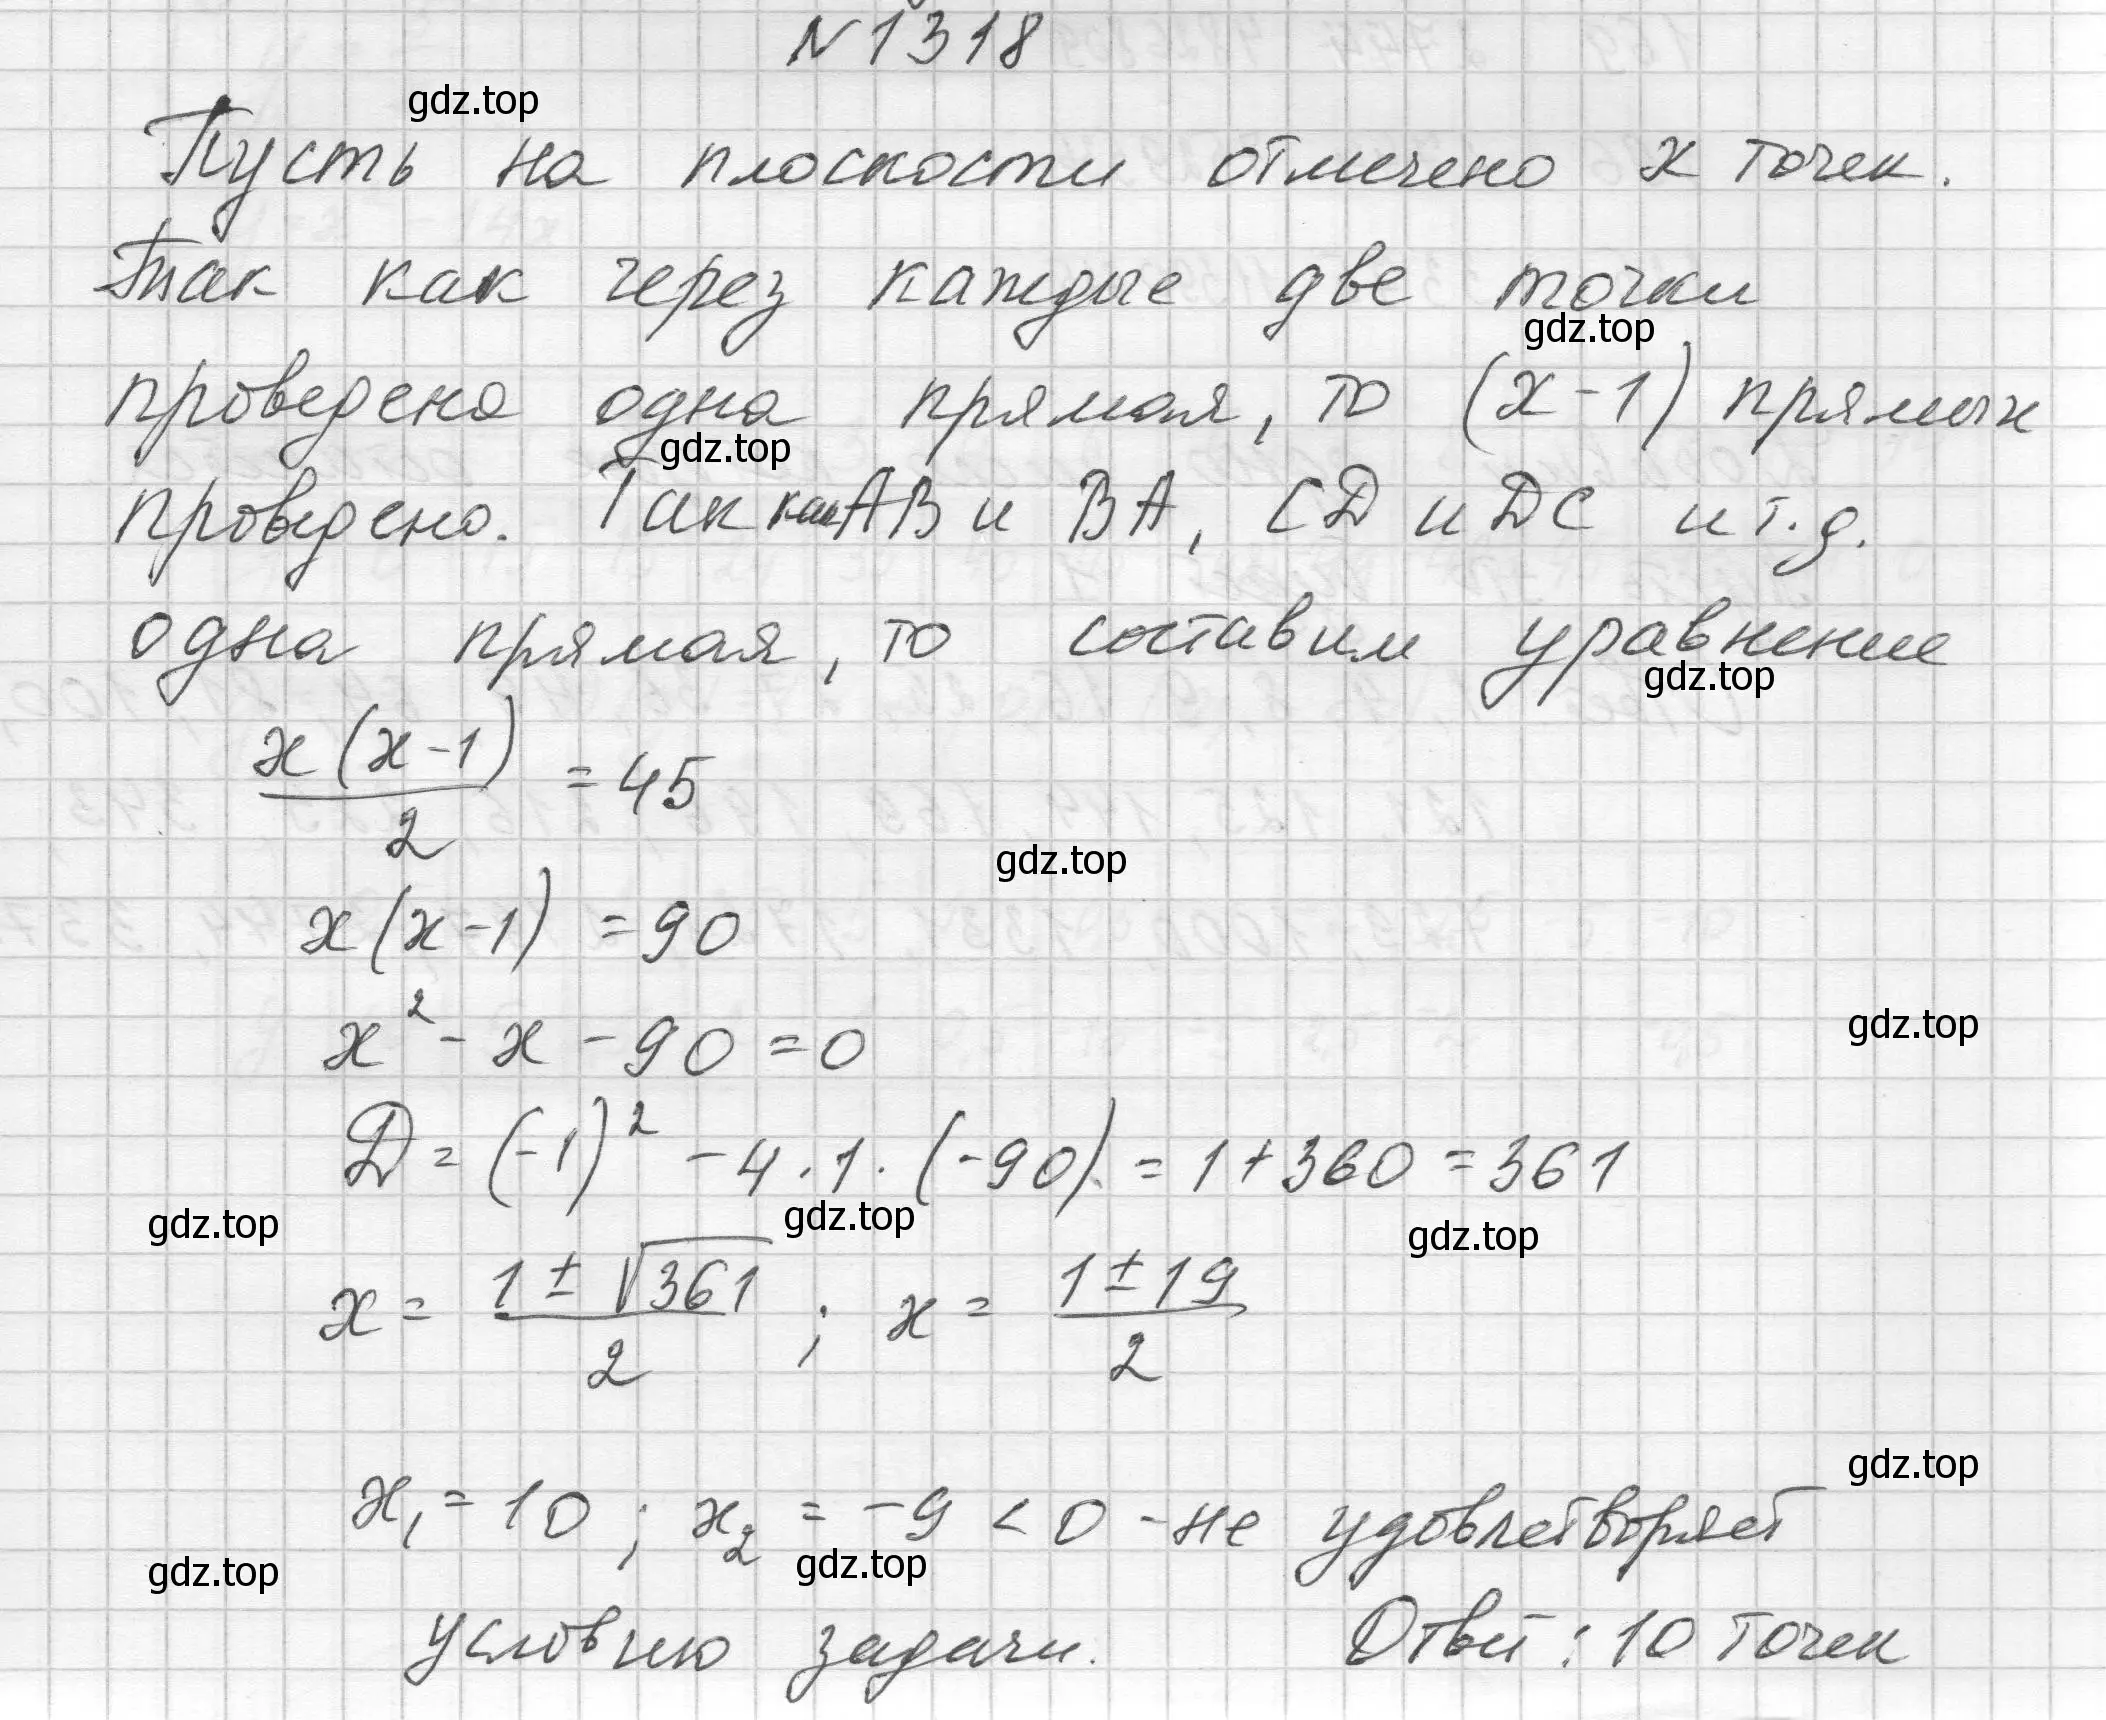 №1318
gdz.top
Пусть на плоскости отмечено x точек.
Так как через каждые две точки
gdz.top
проведена одна прямая, то (x-1) прямых
gdz.top
проведено. Так как AB и BA, CD и DC и т.д.
одна прямая, то составим уравнение
gdz.top
x(x-1)/2 = 45
gdz.top
x(x-1) = 90
gdz.top
x² - x - 90 = 0
D = (-1)² - 4·1·(-90) = 1+360 = 361
gdz.top gdz.top gdz.top
x = (1 ± √361)/2 ; x = (1 ± 19)/2
gdz.top
x₁ = 10 ; x₂ = -9 < 0 - не удовлетворяет
gdz.top gdz.top
условию задачи. Ответ: 10 точек